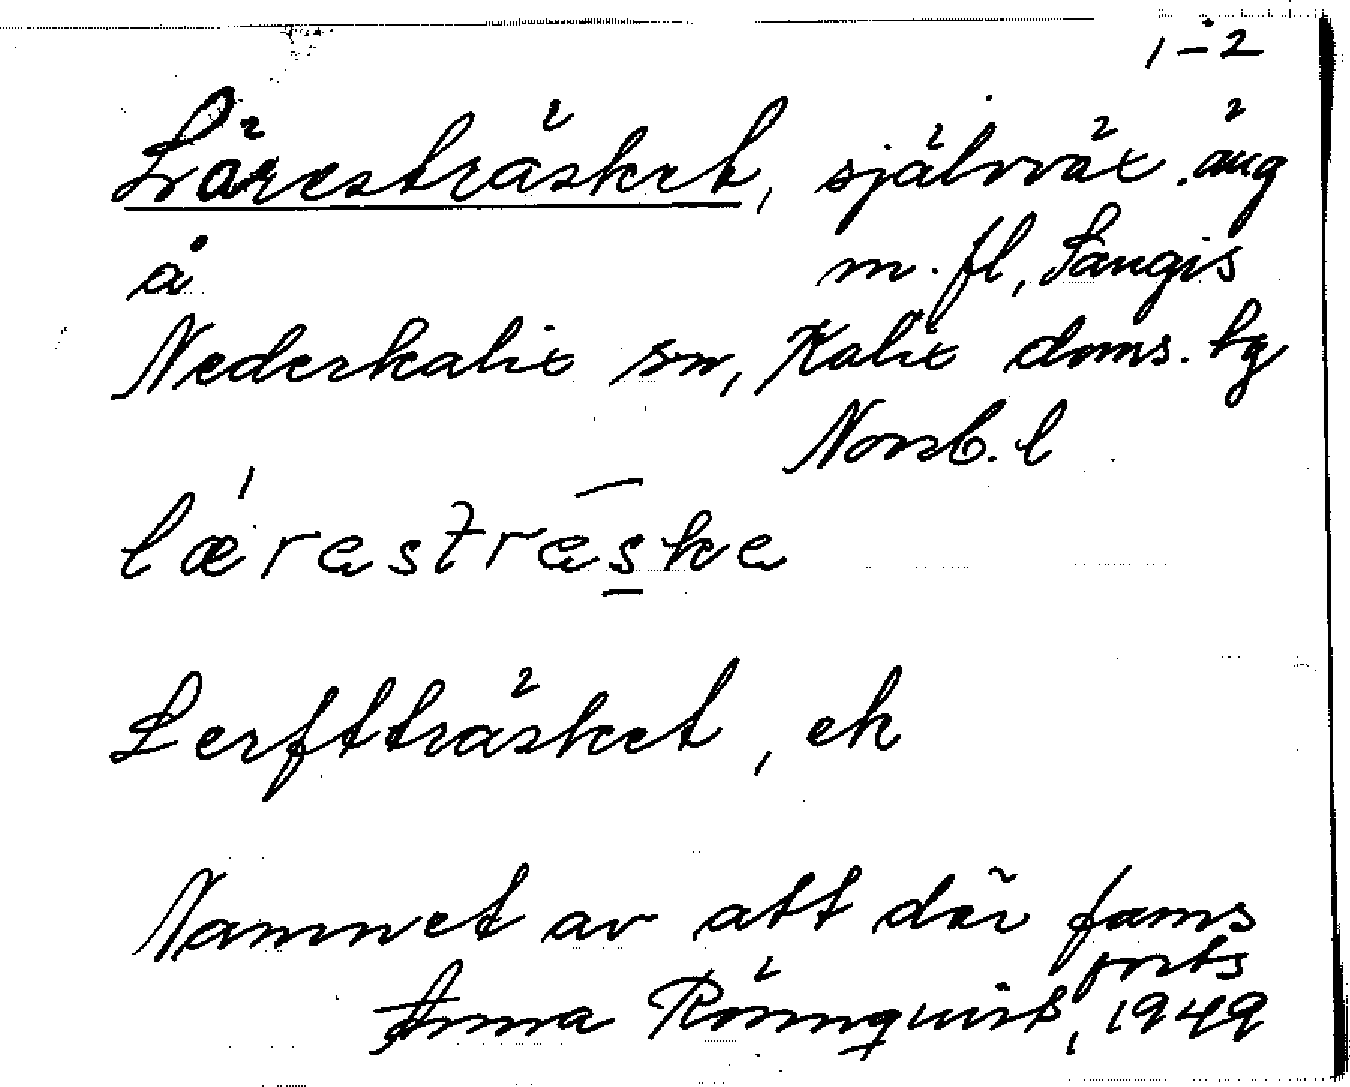 1-2
Läresträsket, självväx. äng
å m. fl, Sangis
Nederkalix sn, Kalix doms. hg
Norrb. l
læ'ræstrǣske
Lerftträsket, ek
Namnet av att där fanns
forts
Anna Rönnquist, 1949